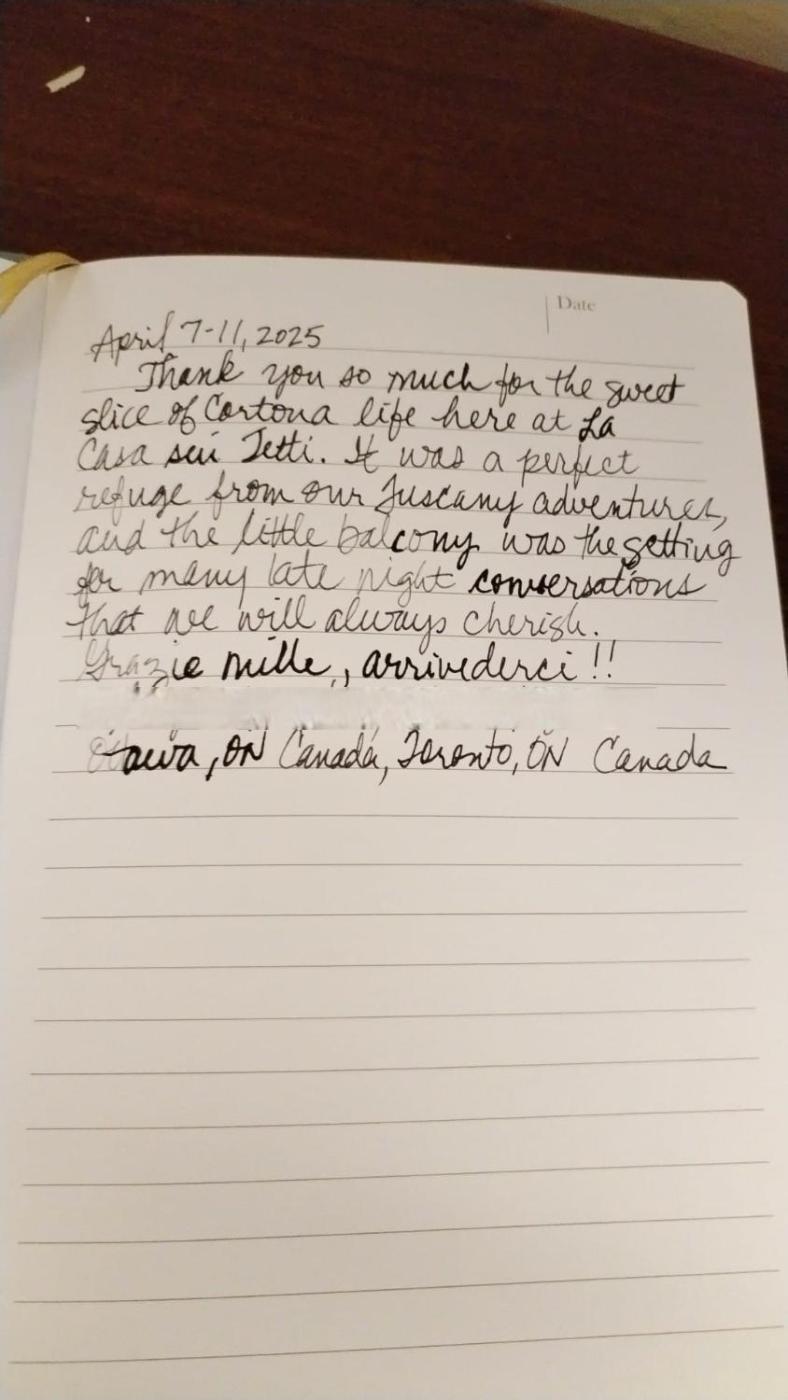 Date
April 7-11, 2025
Thank you so much for the sweet
slice of Cortona life here at La
Casa sui Tetti. It was a perfect
refuge from our Tuscany adventures,
and the little balcony was the setting
for many late night conversations
that we will always cherish.
Grazie mille, arrivederci!!
Ottawa, ON Canada, Toronto, ON Canada